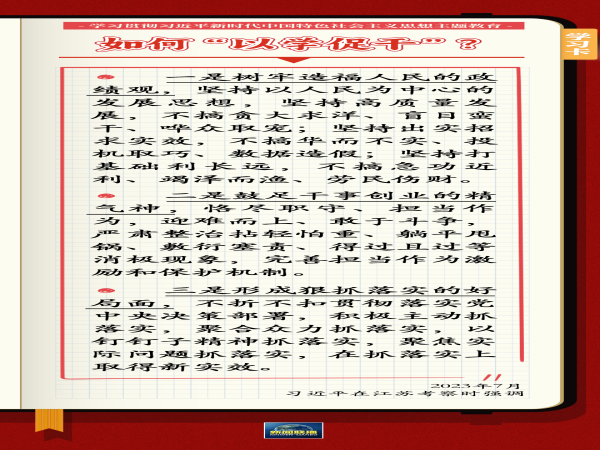 - 学习贯彻习近平新时代中国特色社会主义思想主题教育 -
学习
卡
如何“以学促干”？
一是树牢造福人民的政
绩观，坚持以人民为中心的
发展思想，坚持高质量发
展，不搞贪大求洋、盲目蛮
干、哗众取宠；坚持出实招
求实效，不搞华而不实、投
机取巧、数据造假；坚持打
基础利长远，不搞急功近
利、竭泽而渔、劳民伤财。
二是鼓足干事创业的精
气神，恪尽职守、担当作
为，迎难而上、敢于斗争，
严肃整治拈轻怕重、躺平甩
锅、敷衍塞责、得过且过等
消极现象，完善担当作为激
励和保护机制。
三是形成狠抓落实的好
局面，不折不扣贯彻落实党
中央决策部署，积极主动抓
落实，聚合众力抓落实，以
钉钉子精神抓落实，聚焦实
际问题抓落实，在抓落实上
取得新实效。
2023年7月
习近平在江苏考察时强调
新闻联播